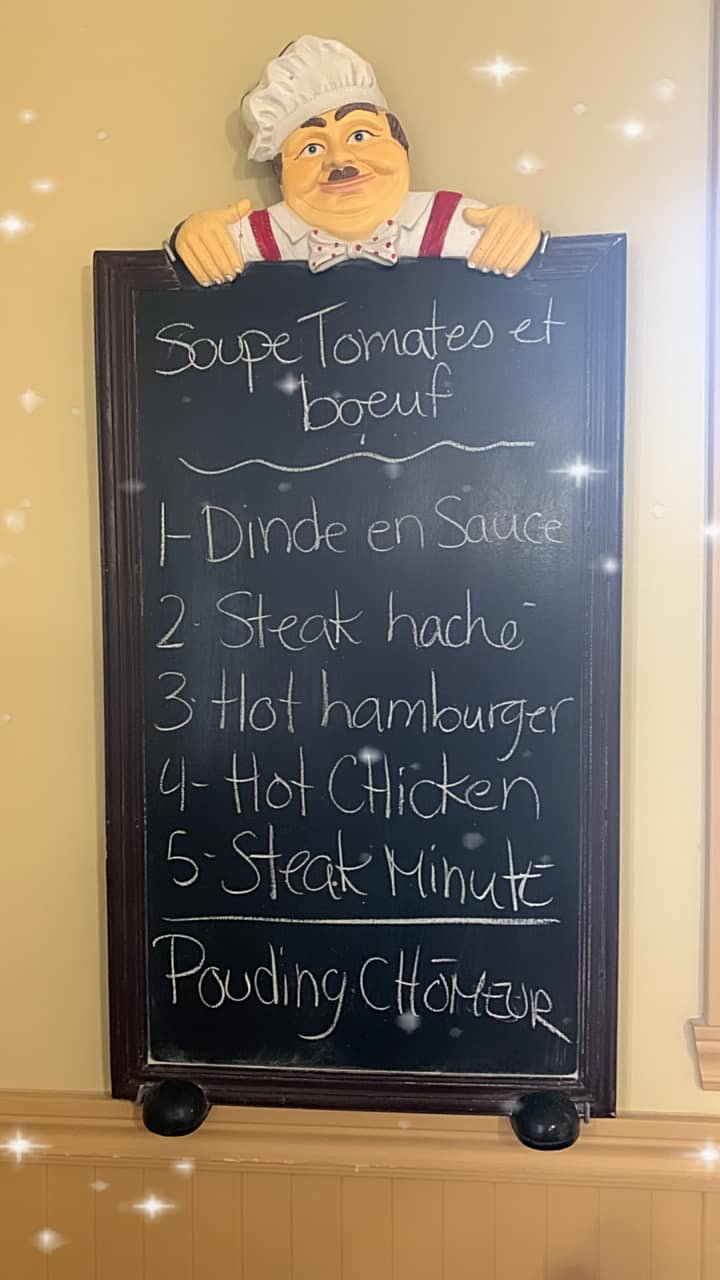 Soupe Tomates et
boeuf
1- Dinde en Sauce
2- Steak haché
3- Hot hamburger
4- Hot CHicken
5- Steak Minute
Pouding CHÔMEUR